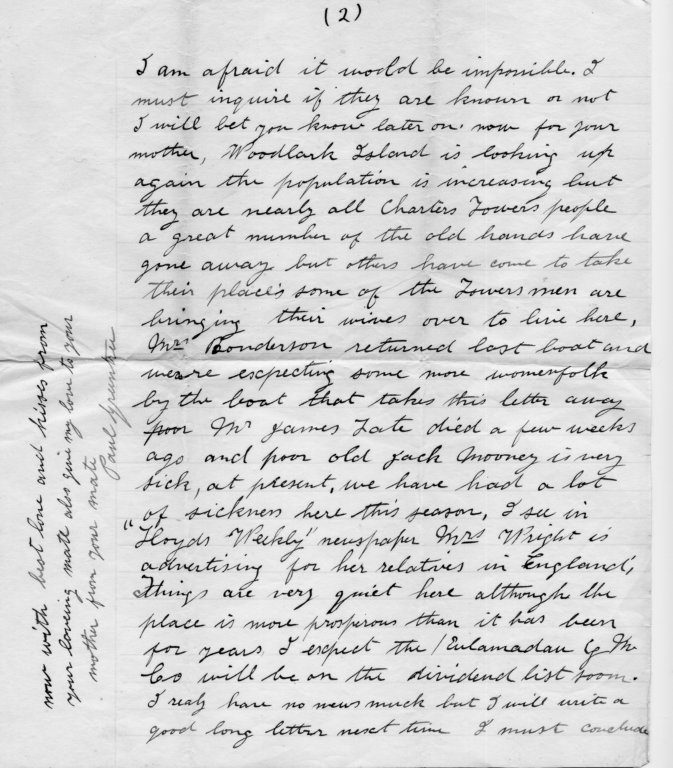 (2)
I am afraid it would be impossible. I
must inquire if they are known or not
I will let you know later on. now for your
mother, Woodlark Island is looking up
again the population is increasing but
they are nearly all Charters Towers people
a great number of the old hands have
gone away but others have come to take
their place's some of the Towers men are
bringing their wives over to live here,
Mrs returned last boat and
we are expecting some more womenfolk
by the boat that takes this letter away
poor Mr James Tate died a few weeks
ago and poor old Jack Mooney is very
sick, at present, we have had a lot
of sickness here this season, I see in
"Lloyds Weekly" newspaper Mrs Wright is
advertising for her relatives in England,
Things are very quiet here although the
place is more prosperous than it has been
for years I expect the Kulamadau G M
Co will be on the dividend list soon.
I realy have no news much but I will write a
good long letter next time I must conclude
now with best love and kisses from
your loveing mate also give my love to your
mother from your mate
Paul